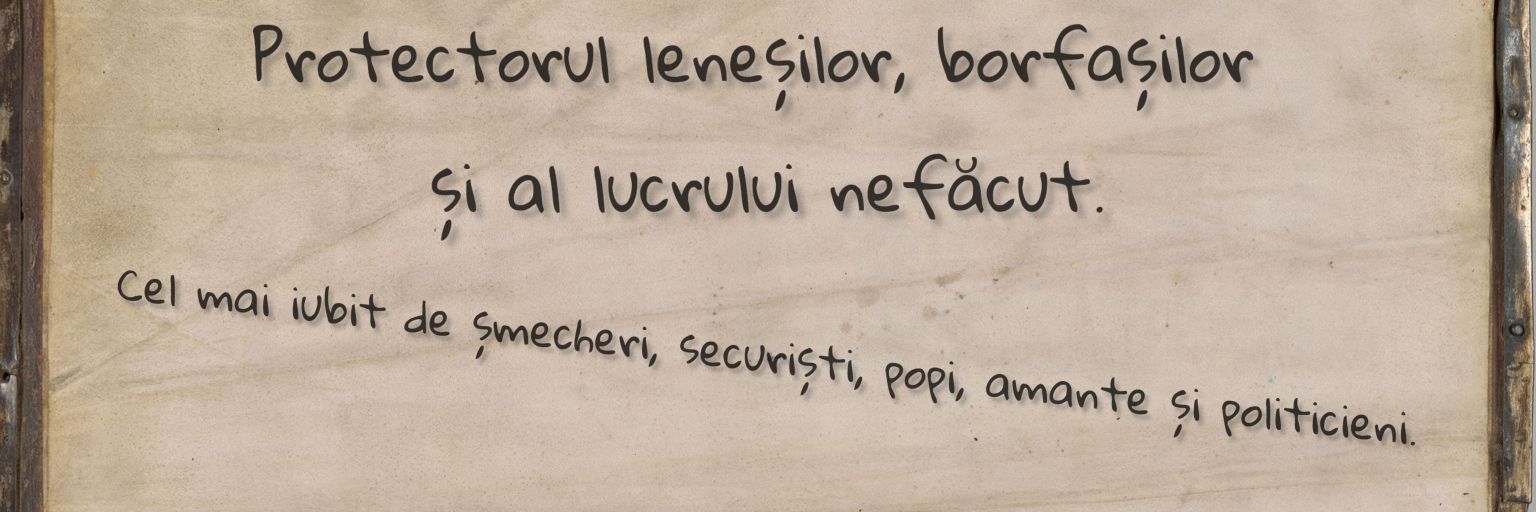 Protectorul leneșilor, borfașilor
și al lucrului nefăcut.
Cel mai iubit de șmecheri, securiști, popi, amante și politicieni.